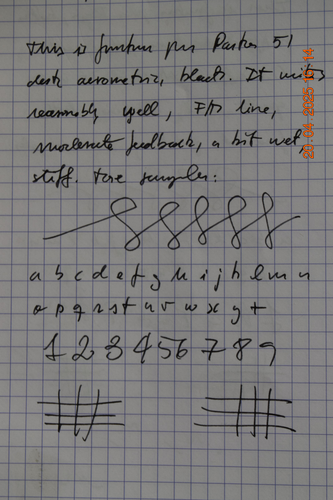 This is fountain pen Parker 51
desk aerometric, black. It writes
reasonably well, F/M line,
moderate feedback, a bit wet,
stiff. Some samples:
a b c d e f g h i j k l m n
o p q r s t u v w x y t
1 2 3 4 5 6 7 8 9
20.04.2025 10:14